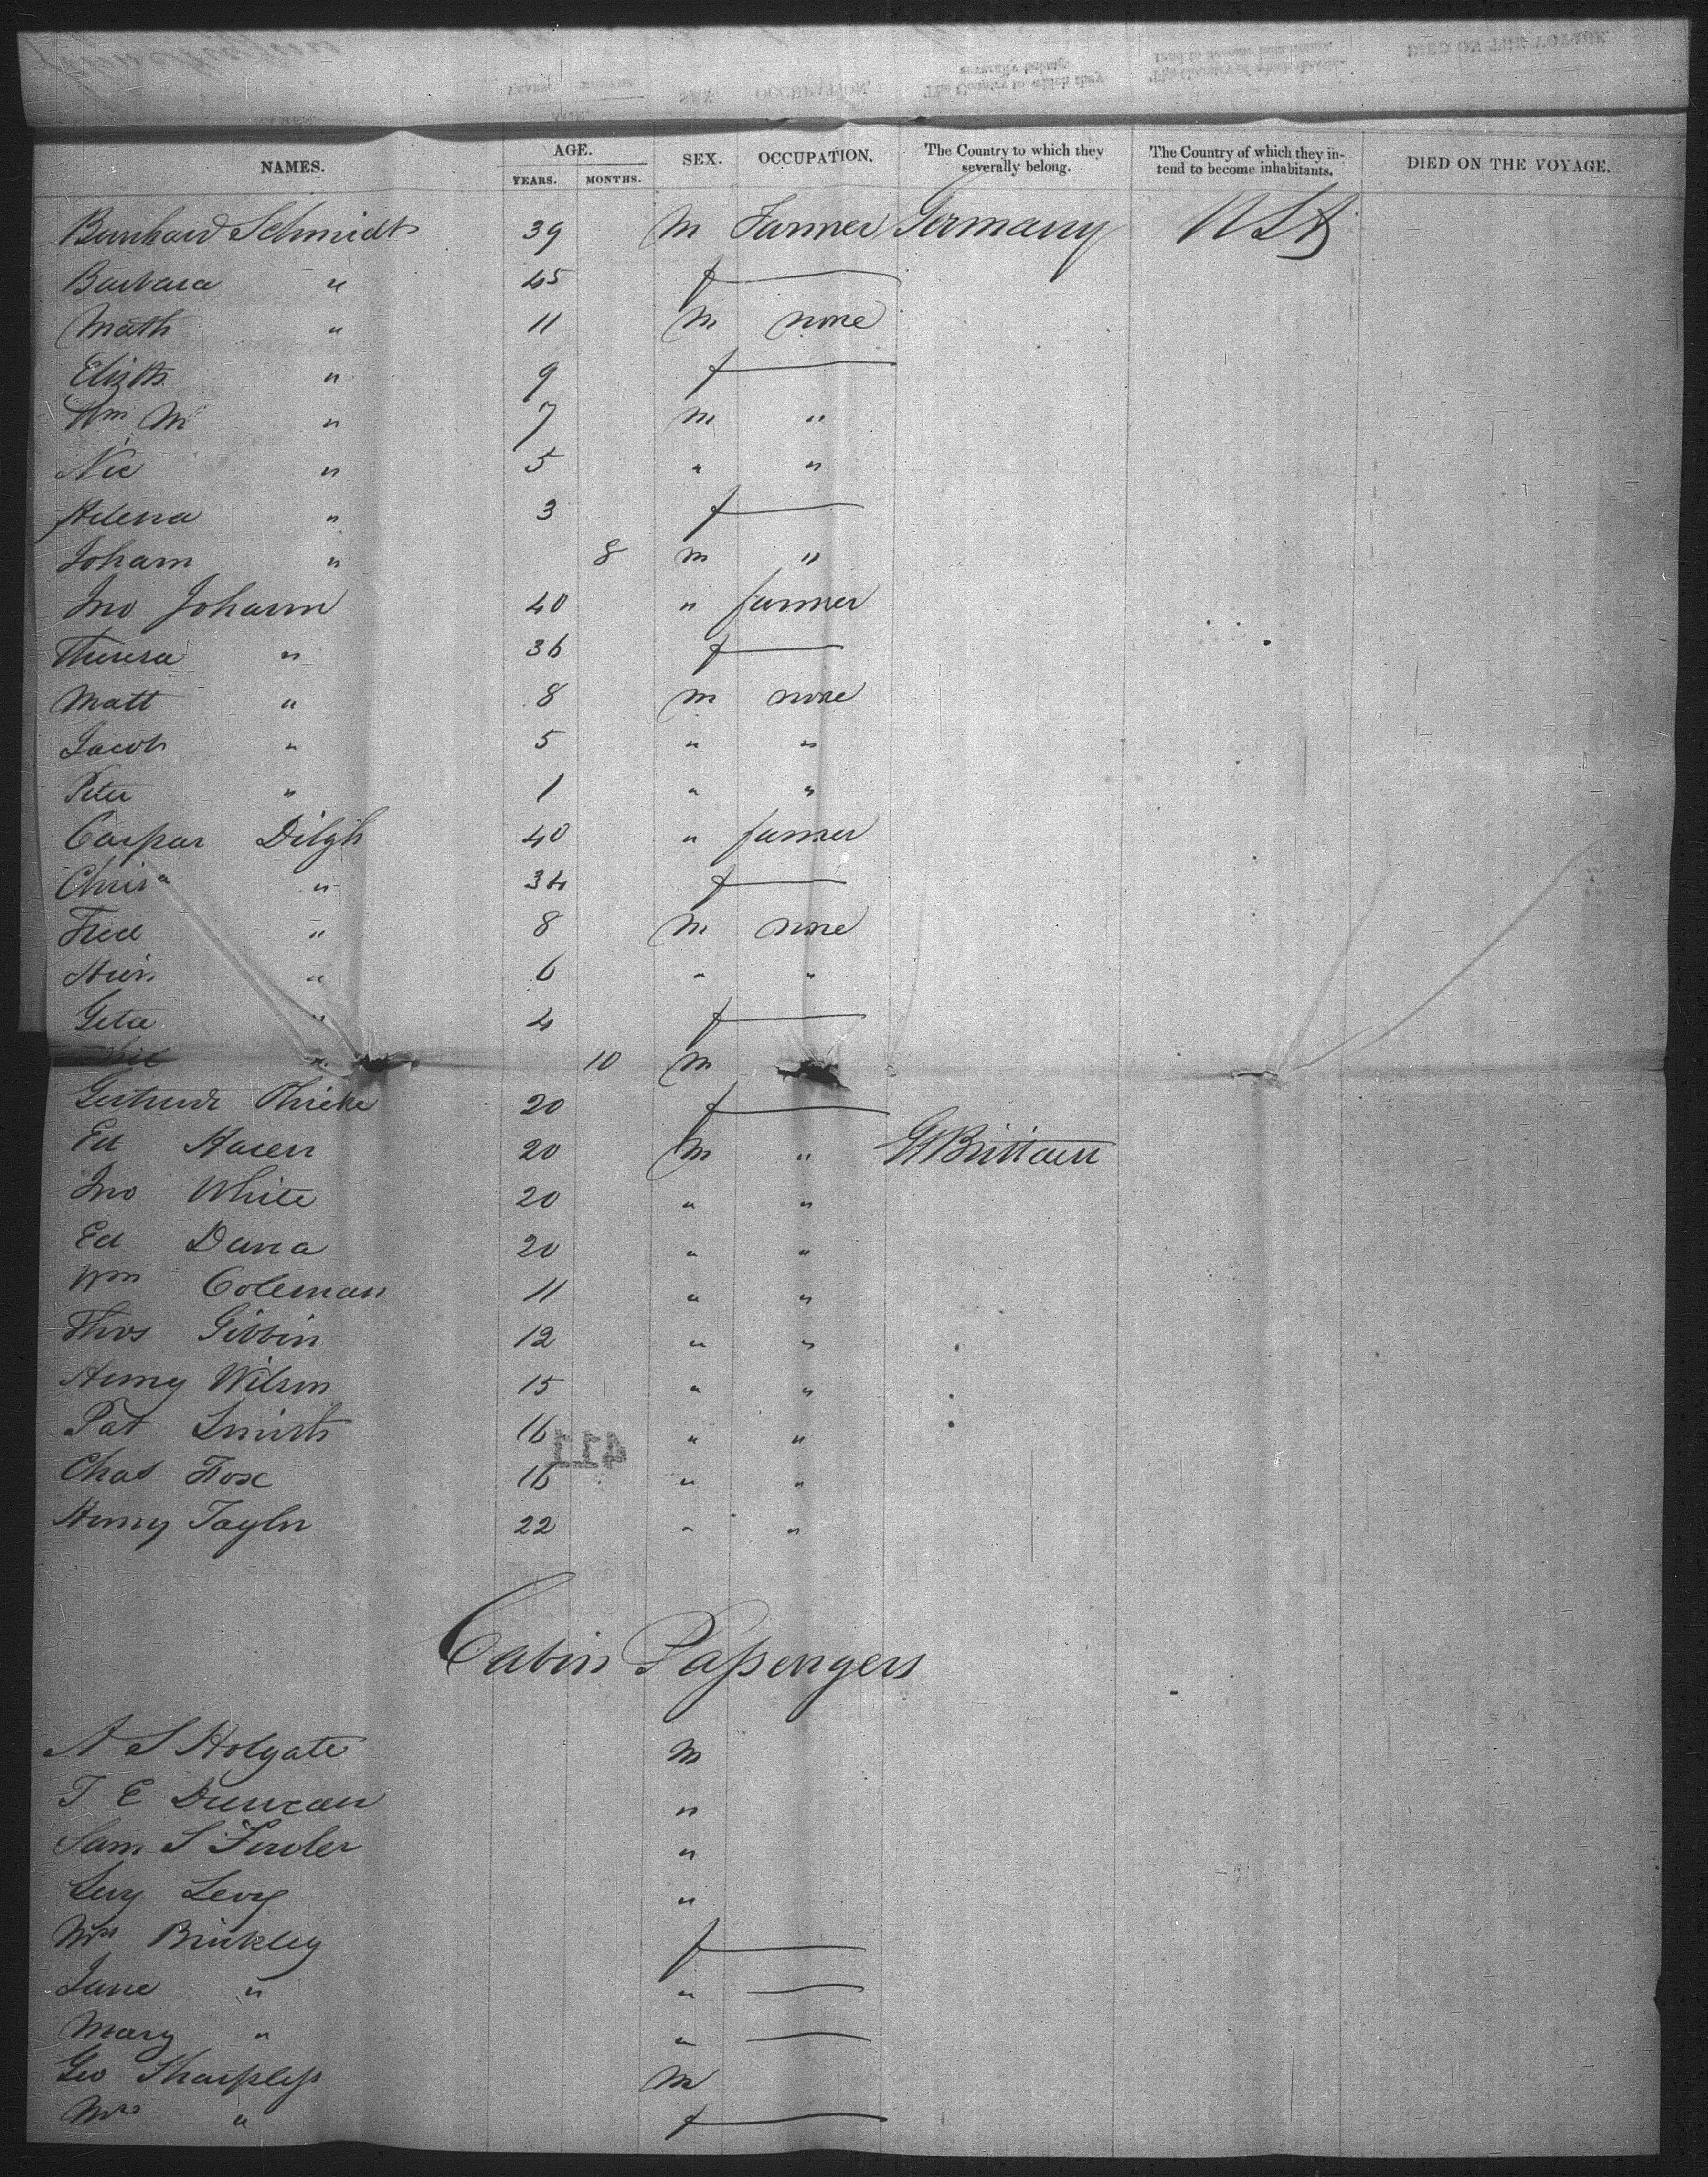 NAMES. AGE. YEARS. MONTHS. SEX. OCCUPATION. The Country to which they severally belong. The Country of which they intend to become inhabitants. DIED ON THE VOYAGE.
Bernhard Schmidt 39 M Farmer Germany USA
Barbara " 45 f
Math " 11 M none
Elizth " 9 f
Wm M " 7 m "
Nic " 5 " "
Helena " 3 f
Joham " 8 m "
Jno Johann 40 " farmer
Theresa " 36 f
Matt " 8 m none
Jacob " 5 " "
Peter " 1 " "
Caspar Dilgh 40 " farmer
Chrisa " 34 f
Fred " 8 M none
" 6 " "
Geta " 4 f
" 10 m
Gertrude 20 f
Ed 20 M " Gt Brittain
Jno White 20 " "
Ed Dana 20 " "
Wm Coleman 11 " "
Thos Gibbin 12 " "
Henry Wilson 15 " "
Pat Smith 16 " "
411
Chas Fox 16 " "
Henry Taylor 22 " "
Cabin Passengers
A S Holgate M
T E Duncan "
Sam S "
Levy "
Mrs Binkley f
Jane " "
Mary " "
Geo Sharpless M
Mrs " f